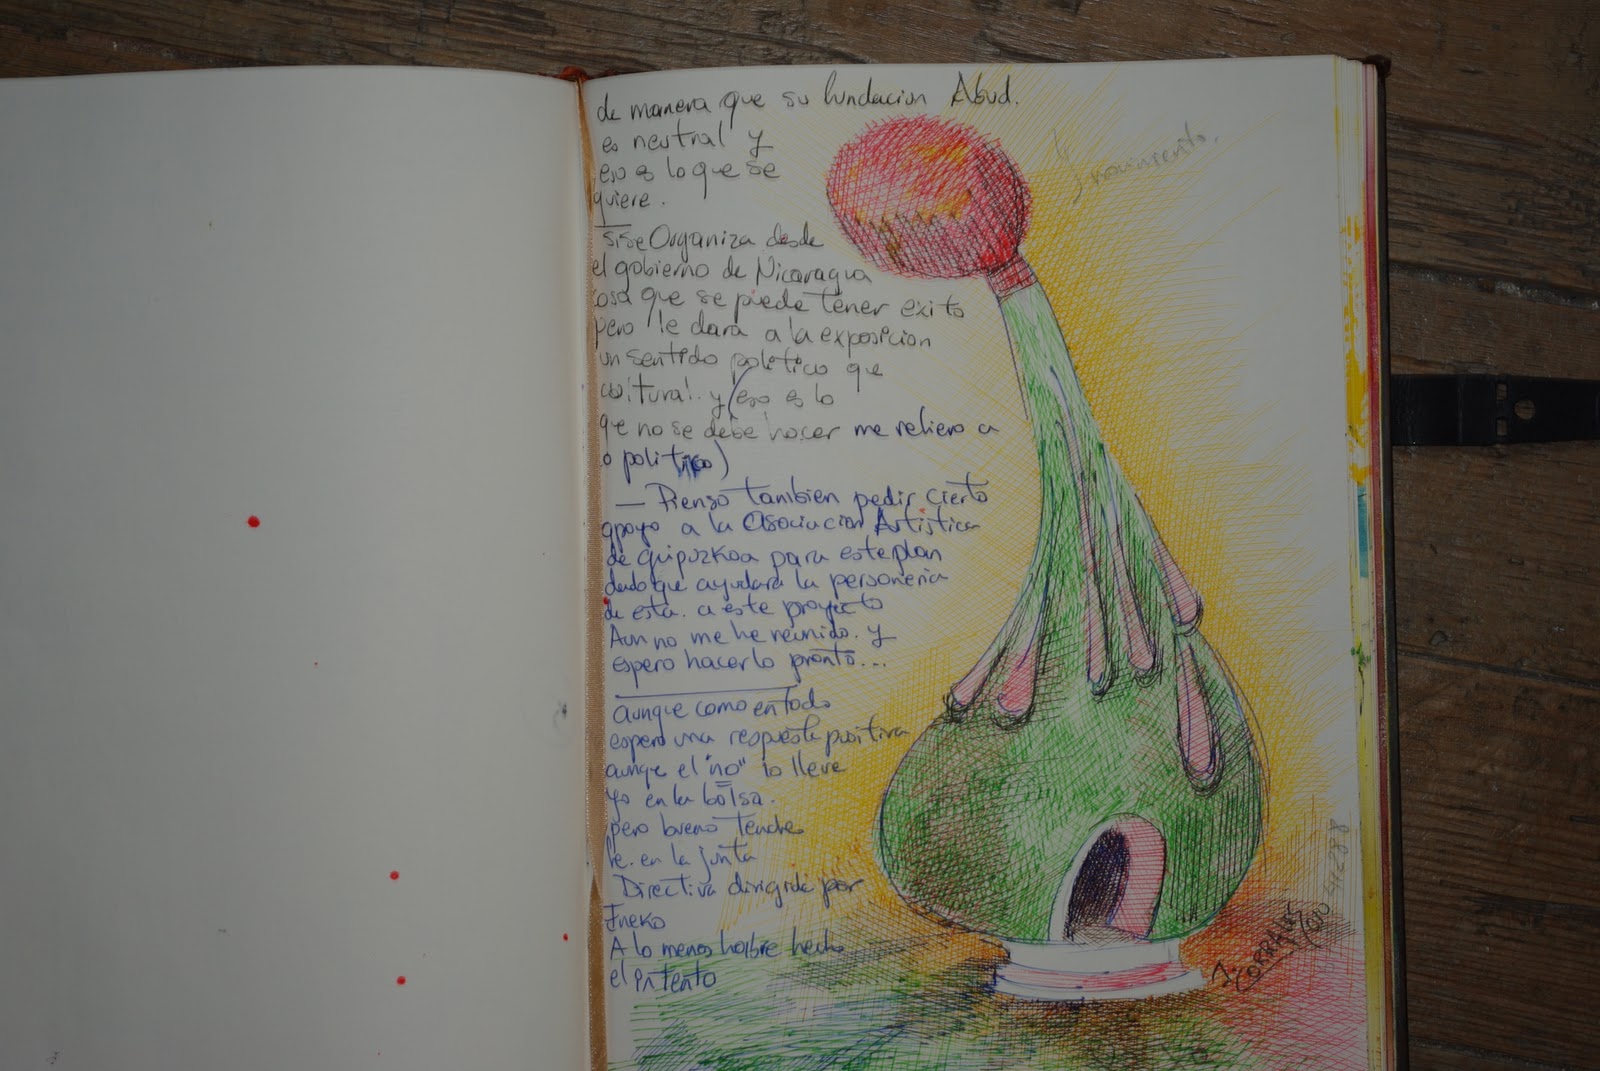 de manera que su fundacion Abud.
es neutral y
eso es lo que se
quiere.
si se Organiza desde
el gobierno de Nicaragua
cosa que se puede tener exito
pero le dara a la exposicion
un sentido politico que
cultural. y (eso es lo
que no se debe hacer me refiero a
lo politico)
— Pienso tambien pedir cierto
apoyo a la asociacion Artistica
de Guipuzkoa para este plan
dado que ayudara la personeria
de esta. a este proyecto
Aun no me he reunido. y
espero hacerlo pronto...
aunque como en todo
espero una respuesta positiva
aunque el "no" lo lleve
yo en la bolsa.
pero bueno
en la junta
Directiva dirigida por
Eneko
A lo menos habre hecho
el intento
y movimiento.
J. CORRALES 2010